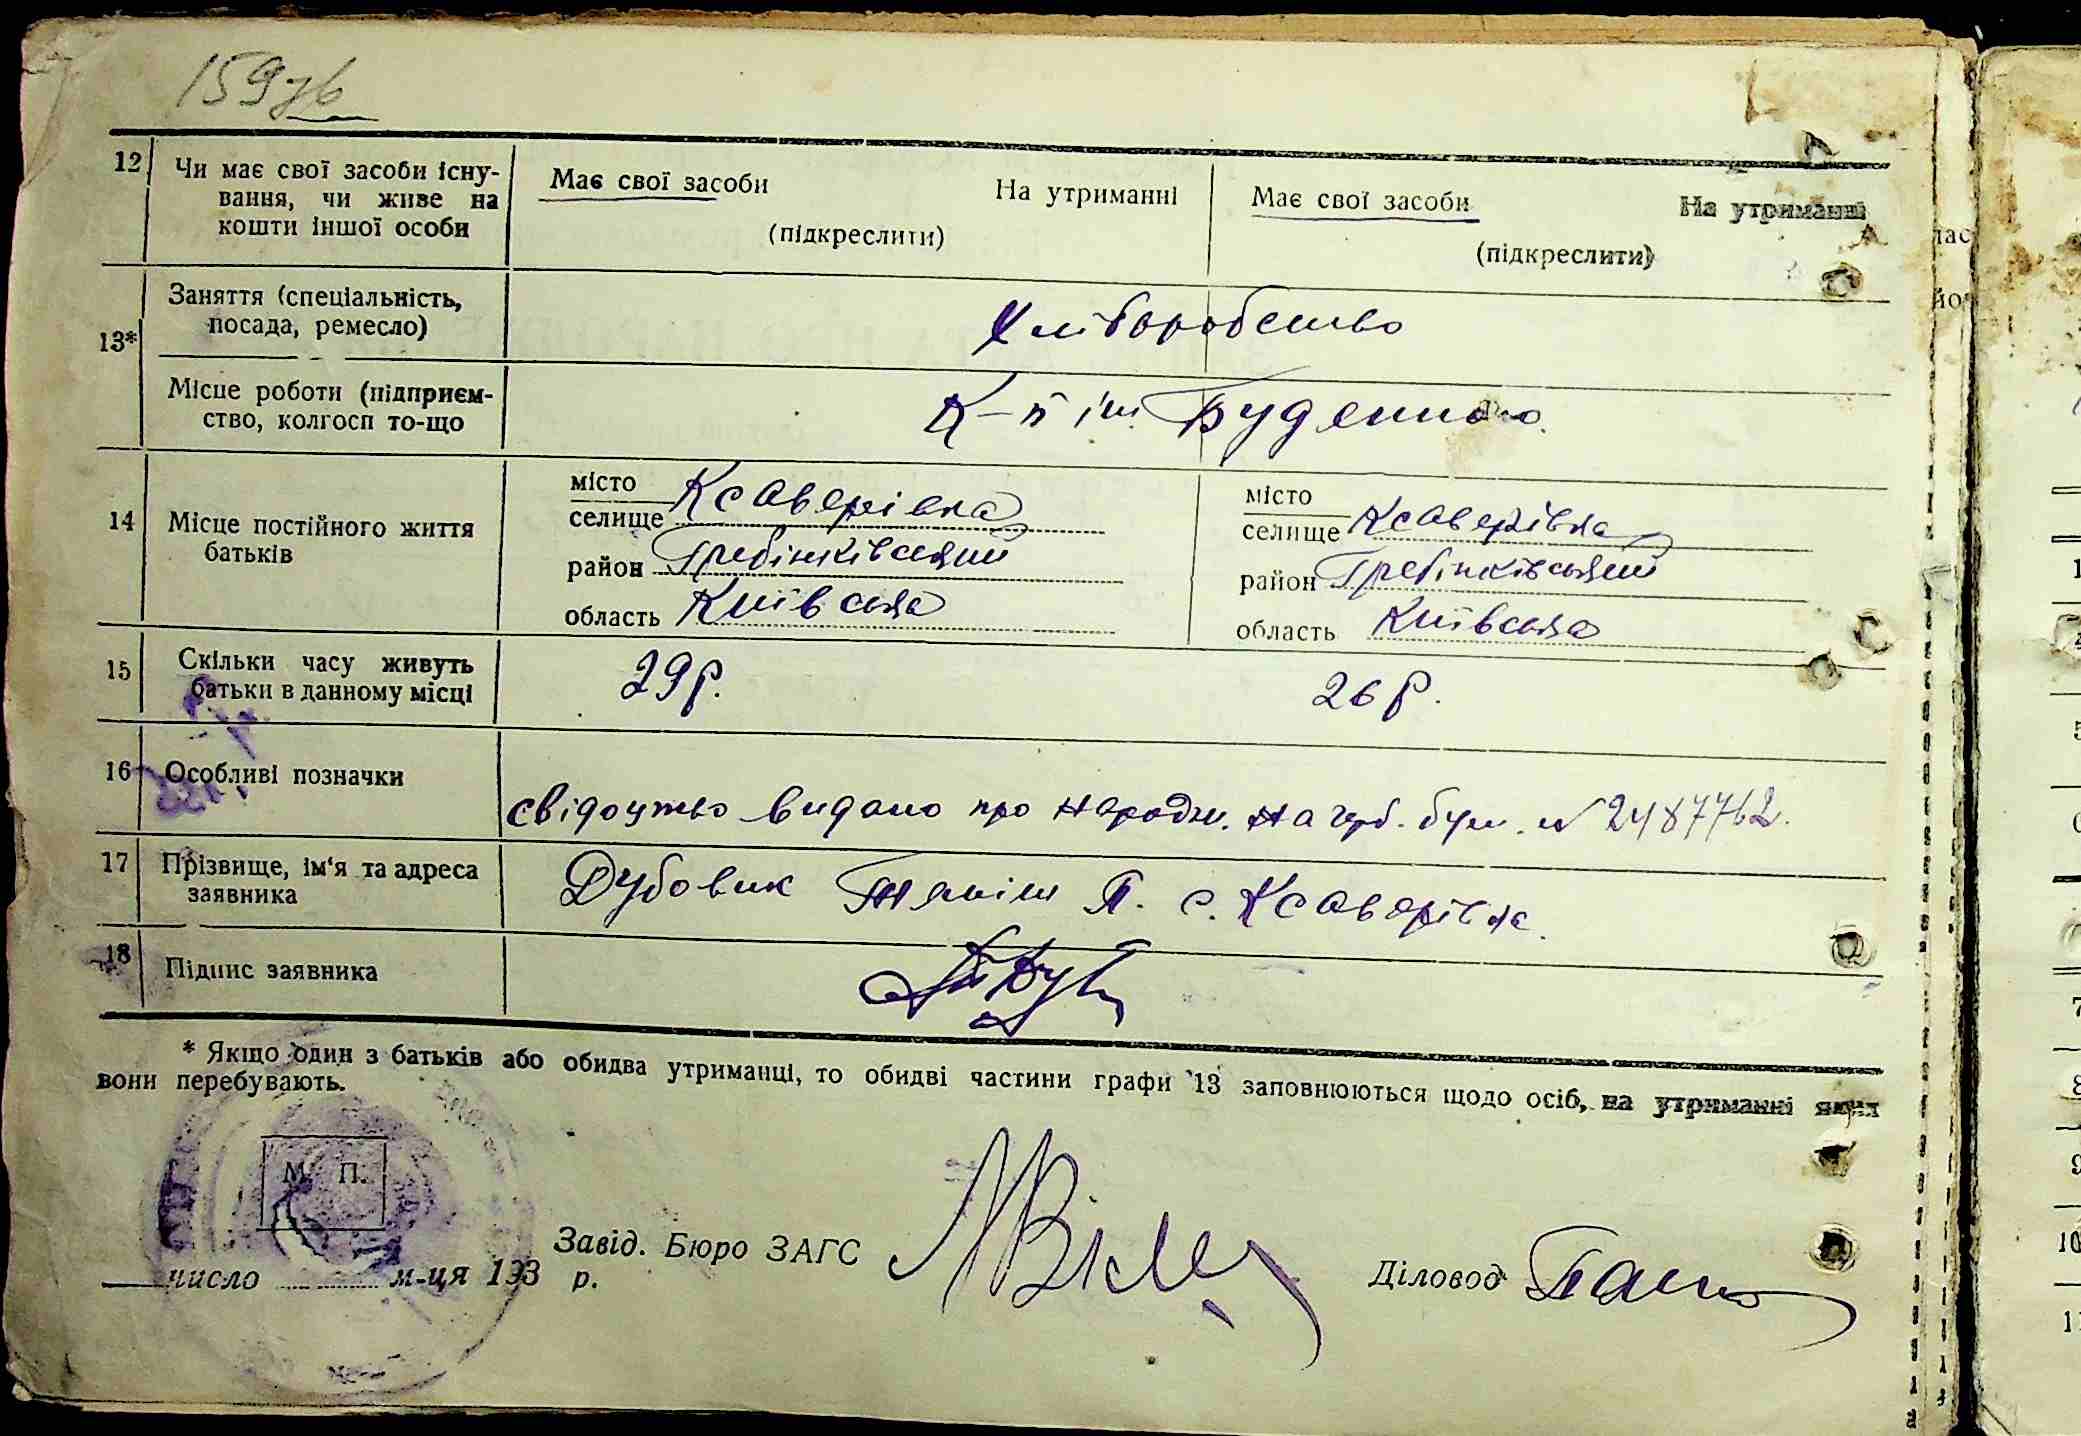 159зв
12 Чи має свої засоби існу-
вання, чи живе на
кошти іншої особи
Має свої засоби На утриманні
(підкреслити)
Має свої засоби На утриманні
(підкреслити)
13* Заняття (спеціальність,
посада, ремесло)
Хліборобство
Місце роботи (підприєм-
ство, колгосп то-що
К-п ім. Буденного.
14 Місце постійного життя
батьків
місто
селище Ксаверівка
район Гребінківський
область Київська
місто
селище Ксаверівка
район Гребінківський
область Київська
15 Скільки часу живуть
батьки в данному місці
29 р.
26 р.
16 Особливі позначки
свідоцтво видано про народж. на герб. бум. № 2487762.
17 Прізвище, ім'я та адреса
заявника
Дубовик П. с. Ксаверівка.
18 Підпис заявника
* Якщо один з батьків або обидва утриманці, то обидві частини графи 13 заповнюються щодо осіб, на утриманні яких
вони перебувають.
М. П.
число м-ця 193 р.
Завід. Бюро ЗАГС
Діловод